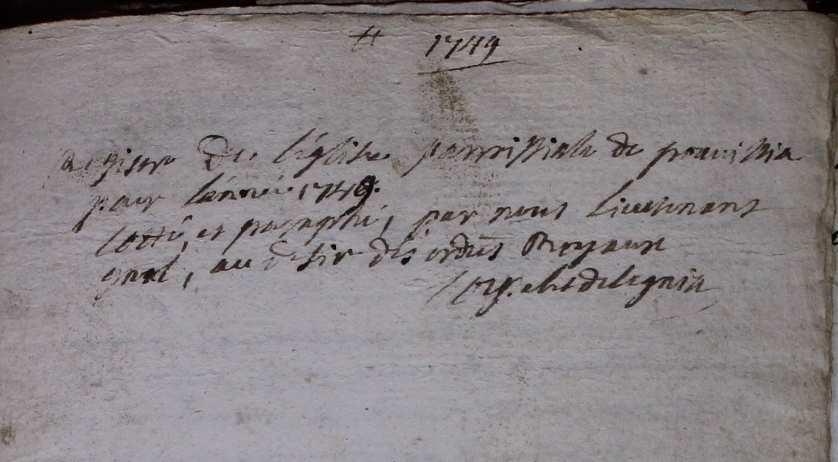 1749
Registre De l'église parroissiale de
pour l'année 1749.
Cotté, et paraphé, par nous Lieutenant
gnal, au désir des ordres Royaux